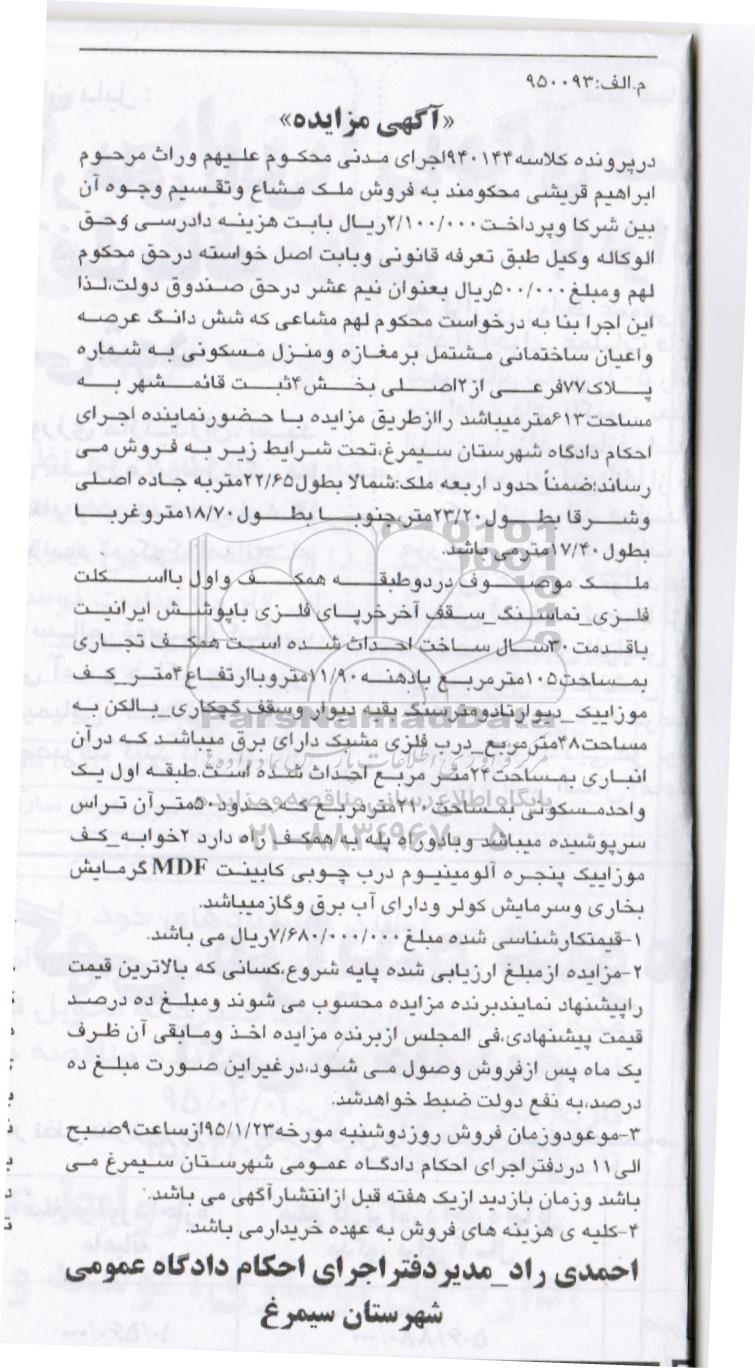 م.الف:۹۵۰۰۹۳
«آگهی مزایده»
درپرونده کلاسه۹۴۰۱۴۴اجرای مدنی محکوم علیهم وراث مرحوم
ابراهیم قریشی محکومند به فروش ملک مشاع وتقسیم وجوه آن
بین شرکا وپرداخت۲/۱۰۰/۰۰۰ریال بابت هزینه دادرسی وحق
الوکاله وکیل طبق تعرفه قانونی وبابت اصل خواسته درحق محکوم
لهم ومبلغ۵۰۰/۰۰۰ریال بعنوان نیم عشر درحق صندوق دولت،لذا
این اجرا بنا به درخواست محکوم لهم مشاعی که شش دانگ عرصه
واعیان ساختمانی مشتمل برمغازه ومنزل مسکونی به شماره
پلاک۷۷فرعی از۲اصلی بخش۴ثبت قائمشهر به
مساحت۶۱۳مترمیباشد راازطریق مزایده با حضورنماینده اجرای
احکام دادگاه شهرستان سیمرغ،تحت شرایط زیر به فروش می
رساند؛ضمناً حدود اربعه ملک:شمالا بطول۲۲/۶۵متربه جاده اصلی
وشرقا بطول۲۳/۲۰متر،جنوبا بطول۱۸/۷۰متروغربا
بطول۱۷/۴۰مترمی باشد.
ملک موصوف دردوطبقه همکف واول بااسکلت
فلزی_نماسنگ_سقف آخرخرپای فلزی باپوشش ایرانیت
باقدمت۳۰سال ساخت احداث شده است همکف تجاری
بمساحت۱۰۵مترمربع بادهنه۱۱/۹۰متروباارتفاع۴متر_کف
موزاییک_دیوارتادومترسنگ بقیه دیوار وسقف گچکاری بالکن به
مساحت۴۸مترمربع_درب فلزی مشبک دارای برق میباشد که درآن
انباری بمساحت۲۴متر مربع احداث شده است.طبقه اول یک
واحدمسکونی بمساحت۲۱۰مترمربع که حدود۵۰مترآن تراس
سرپوشیده میباشد وبادوراه پله به همکف راه دارد ۲خوابه_کف
موزاییک پنجره آلومینیوم درب چوبی کابینت MDF گرمایش
بخاری وسرمایش کولر ودارای آب برق وگازمیباشد.
۱-قیمتکارشناسی شده مبلغ ۷/۶۸۰/۰۰۰/۰۰۰ریال می باشد.
۲-مزایده ازمبلغ ارزیابی شده پایه شروع،کسانی که بالاترین قیمت
راپیشنهاد نمایندبرنده مزایده محسوب می شوند ومبلغ ده درصد
قیمت پیشنهادی،فی المجلس ازبرنده مزایده اخذ ومابقی آن ظرف
یک ماه پس ازفروش وصول می شود،درغیراین صورت مبلغ ده
درصد،به نفع دولت ضبط خواهدشد.
۳-موعدوزمان فروش روزدوشنبه مورخه۹۵/۱/۲۳ازساعت۹صبح
الی۱۱ دردفتراجرای احکام دادگاه عمومی شهرستان سیمرغ می
باشد وزمان بازدید ازیک هفته قبل ازانتشارآگهی می باشد.
۴-کلیه ی هزینه های فروش به عهده خریدارمی باشد.
احمدی راد_مدیردفتراجرای احکام دادگاه عمومی
شهرستان سیمرغ
ParsNamadData
پایگاه اطلاع رسانی مناقصه و مزایده
۰۲۱-۸۸۳۴۹۶۷۰-۵